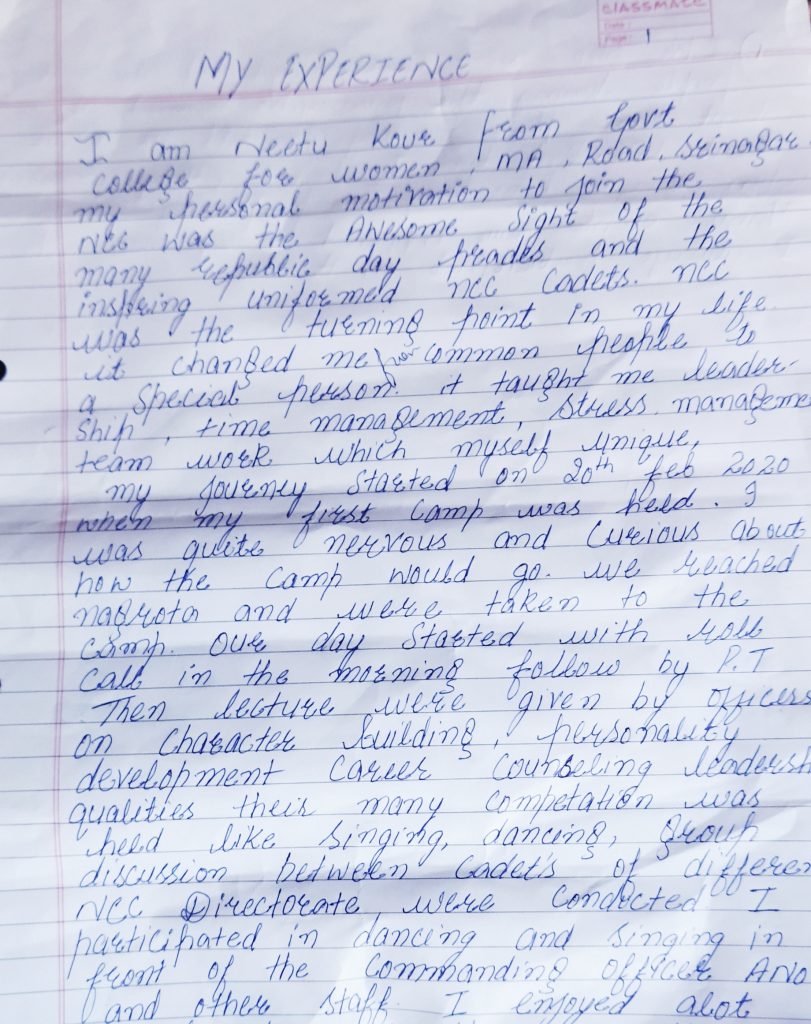 CLASSMATE
Date :
Page : 1
MY EXPERIENCE
I am Neetu Kour from Govt
College for women, MA, Road, Srinagar
my personal motivation to join the
NCC was the Awesome Sight of the
many republic day prades and the
inspiring uniformed ncc Cadets. ncc
was the turning point in my life
it changed me from common people to
a special person. it taught me leader-
ship, time management, stress manageme
team work which myself unique,
my journey started on 20th feb 2020
when my first camp was held. I
was quite nervous and curious about
how the camp would go. we reached
nagrota and were taken to the
camp. Our day started with roll
call in the morning follow by P.T
Then lecture were given by officers
on Character building, personality
development Career Counseling leadersh
qualities their many competation was
held like singing, dancing, group
discussion between Cadet's of differen
NCC Directorate were conducted I
participated in dancing and singing in
front of the Commanding officer ANO
and other staff. I enjoyed alot